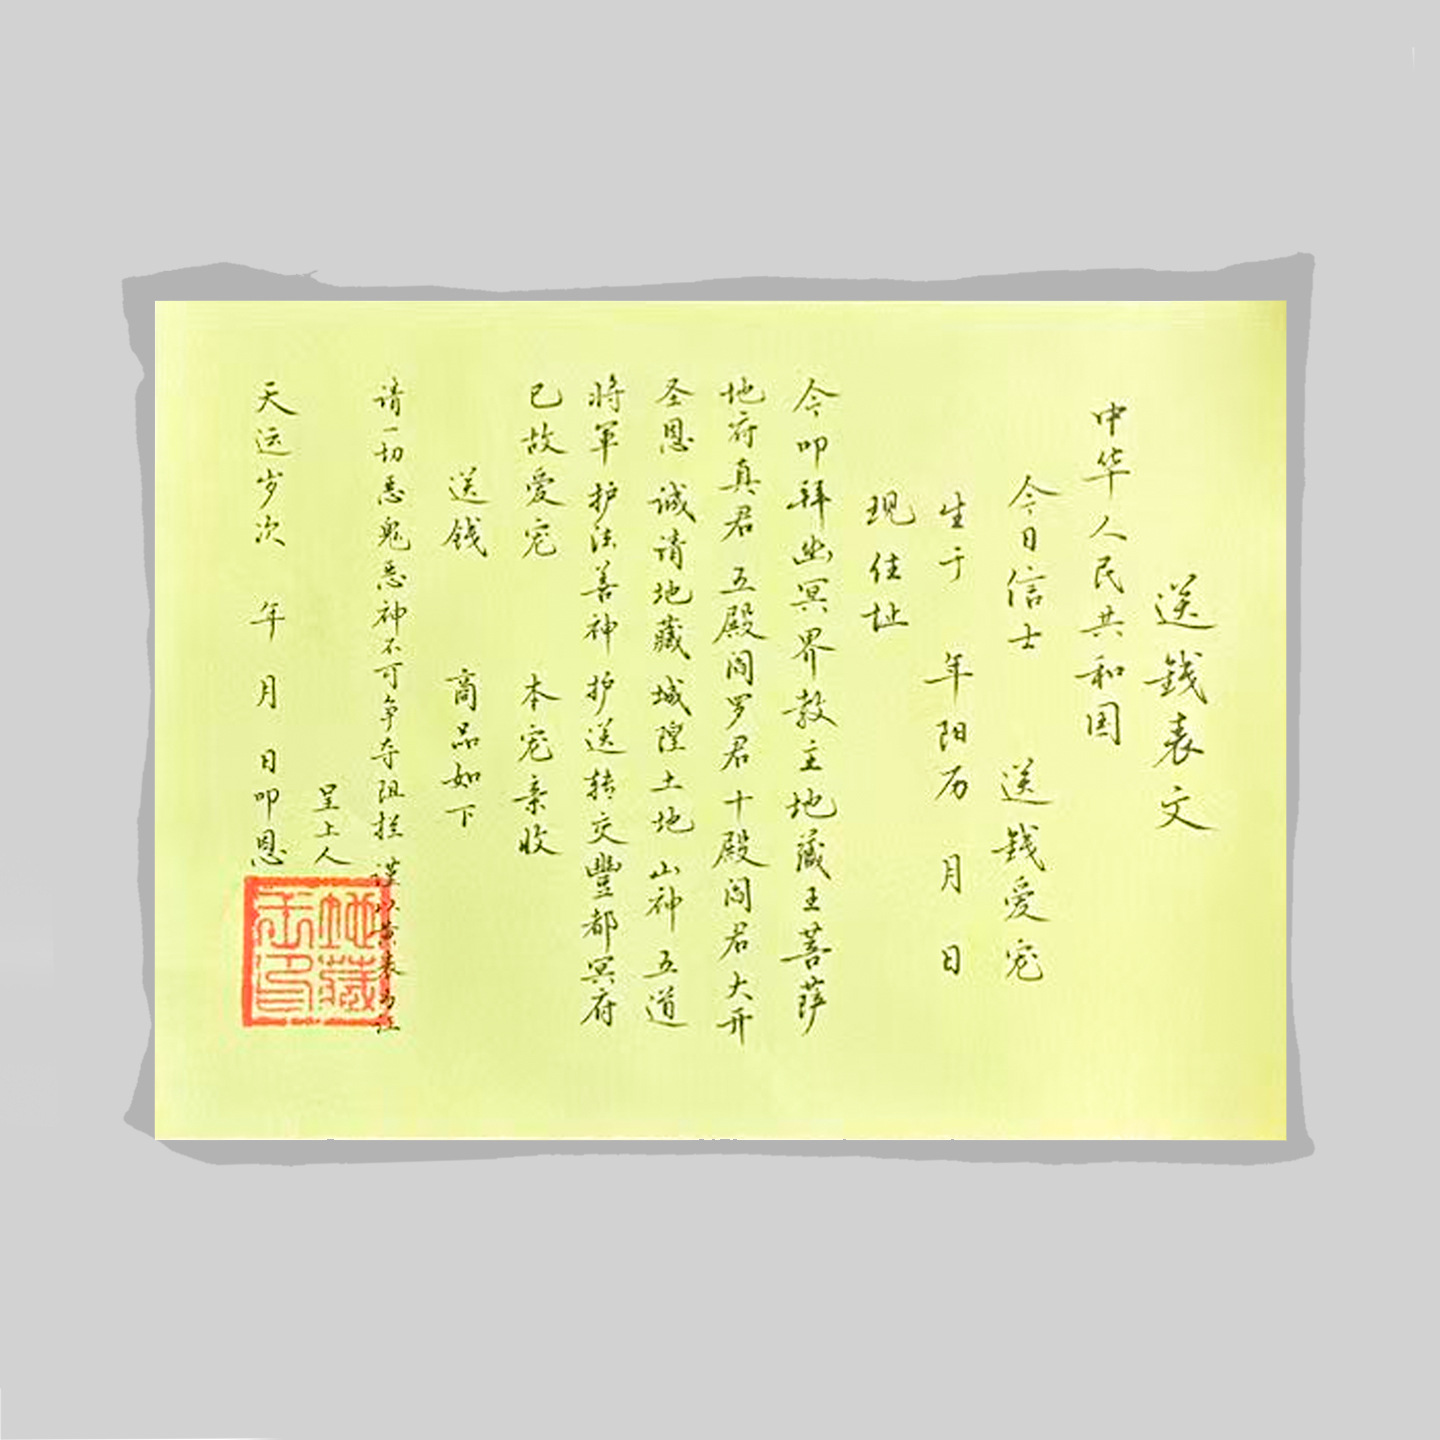 送钱表文
中华人民共和国
今日信士 送钱爱宠
生于 年阳历 月 日
现住址
今叩拜幽冥界教主地藏王菩萨
地府真君 五殿阎罗君十殿阎君大开
圣恩 诚请地藏 城隍土地 山神 五道
将军 护法善神 护送转交豐都冥府
已故爱宠 本宠亲收
送钱 商品如下
请一切恶鬼恶神不可争夺阻拦 谨以黄表为证
呈上人
天运岁次 年 月 日叩恩
地藏王印